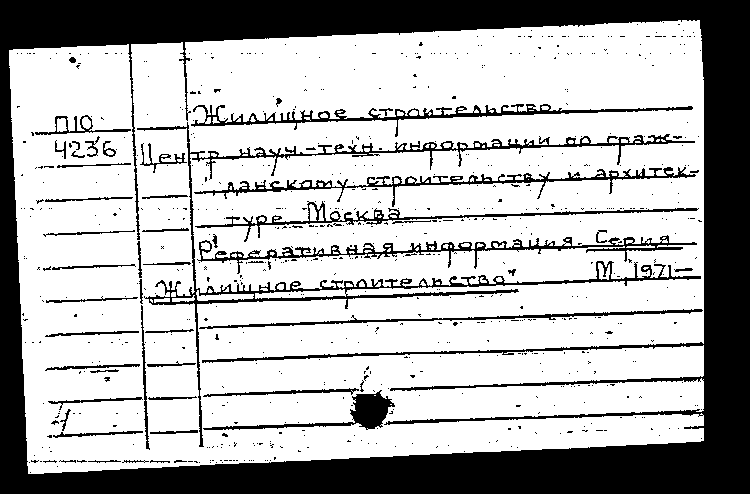 Жилищное строительство.
П10
4236
Центр науч.-техн. информации по граж-
данскому строительству и архитек-
туре. Москва
Реферативная информация. Серия
"Жилищное строительство".
М., 1971—